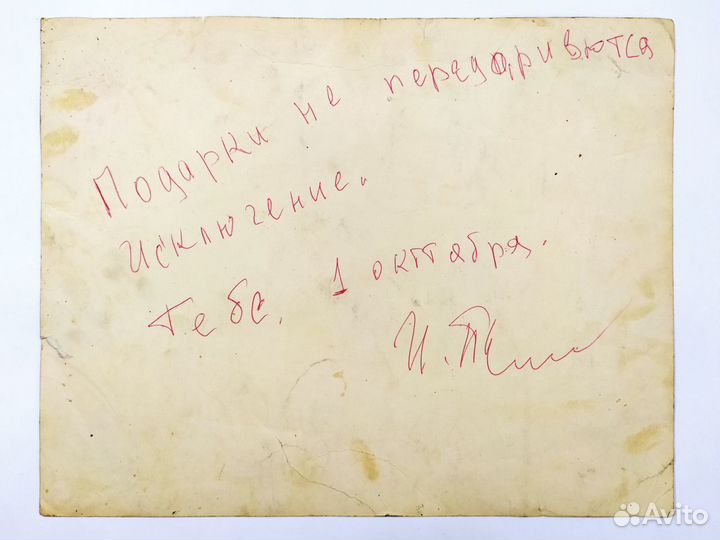 Подарки не передаривются
исключение.
Тебе. 1 октября.
И.
Avito